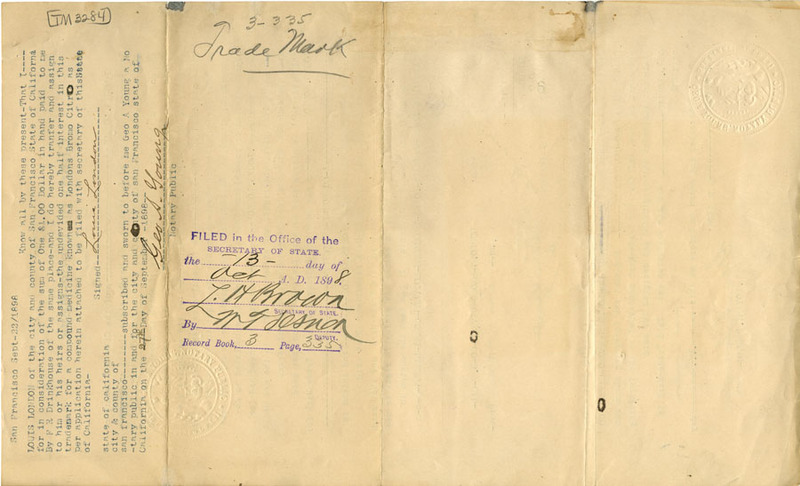 TM 3284
San Francisco Sept-22/1898
Know all by these present-That I----
LOUIS LONDON of the city and county of San Francisco State of California
for in consideration of the sum of One $1.00 Dollar in hand paid to me
By F E Drinkhouse of the same place-and I do hereby tranfer and assign
to him or his heirs or assigns-the undevided one half interest in this
trademark for a compound medicine known as Londons Bromo Citro as
per application herein attached to be filed with secretary of this State
of California-
Signed--Louis London
state of california
city & county of
san francisco--------subscribed and sworn to before me Geo A Young a No
-tary public in and for the city and county of san Francisco state of
California on the day of September -1898--
Geo A Young
Notary Public
3-335
Trade Mark
FILED in the Office of the
SECRETARY OF STATE.
the 13- day of
Oct A. D. 1898.
L. H. Brown
SECRETARY OF STATE.
By
DEPUTY.
Record Book, 3 Page, 335